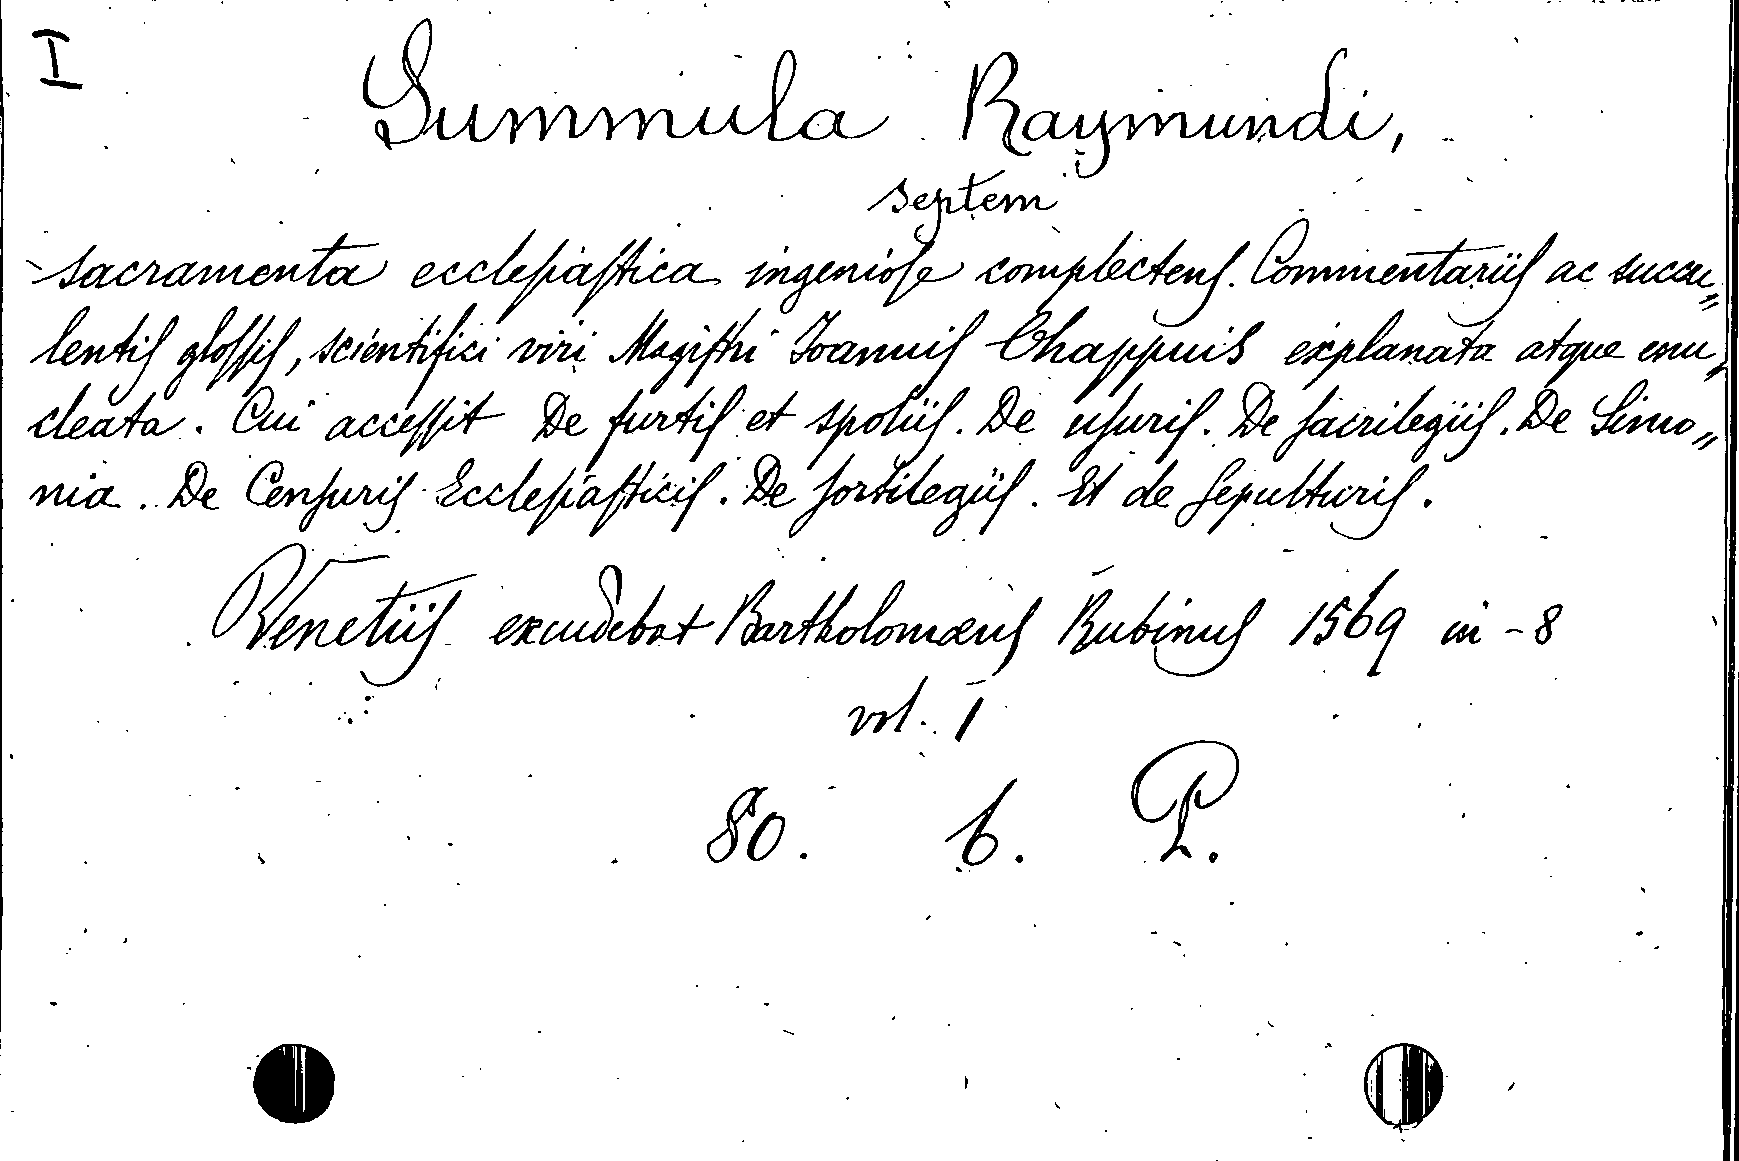 I
Summula Raymundi,
septem
sacramenta ecclesiastica ingeniose complectens. Commentariis ac succu„
lentis glossis, scientifici viri Magistri Joannis Chappuis explanata atque enu„
cleata. Cui accessit De furtis et spoliis. De usuris. De sacrilegiis. De Simo„
nia. De Censuris Ecclesiasticis. De sortilegiis. Et de sepulturis.
Venetiis excudebat Bartholomæus Rubinus 1569 in-8
vol. 1
80. 6. P.